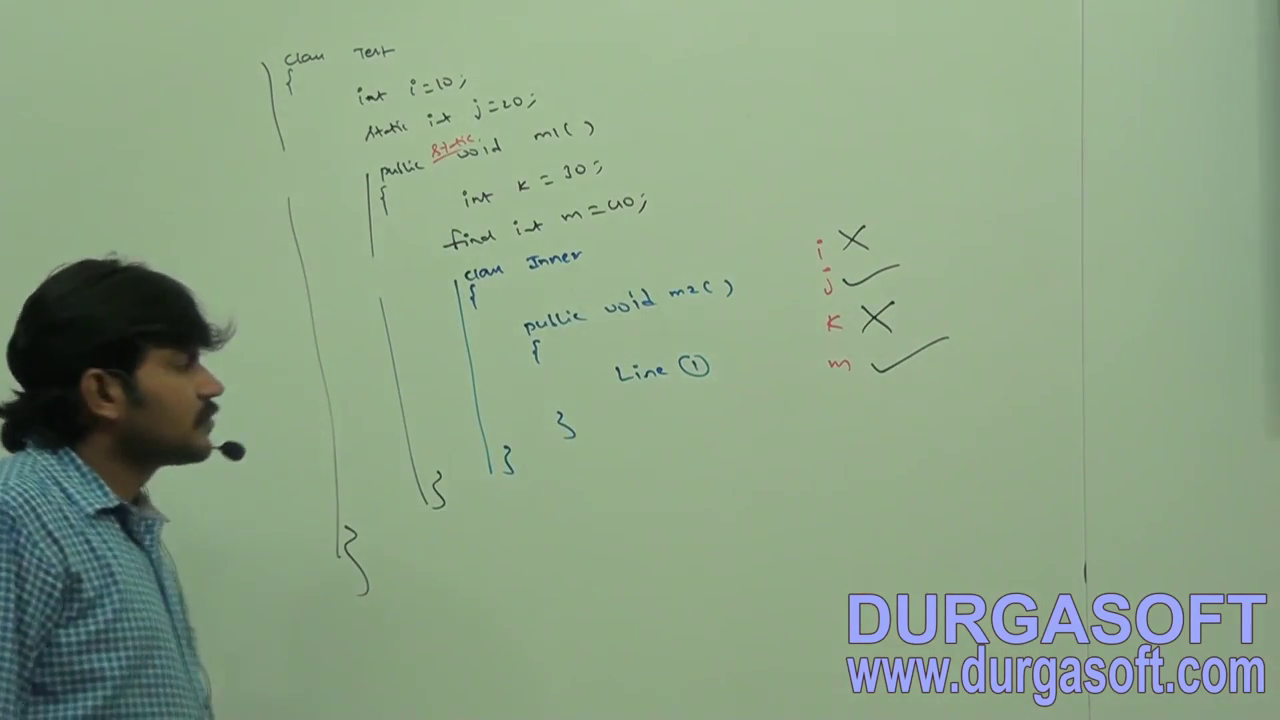 class Test
{
int i=10;
static int j=20;
public static void m1( )
{
int k = 30;
final int m=40;
class Inner
{
public void m2( )
{
Line ①
}
}
}
}
i ✗
j ✓
k ✗
m ✓
DURGASOFT
www.durgasoft.com